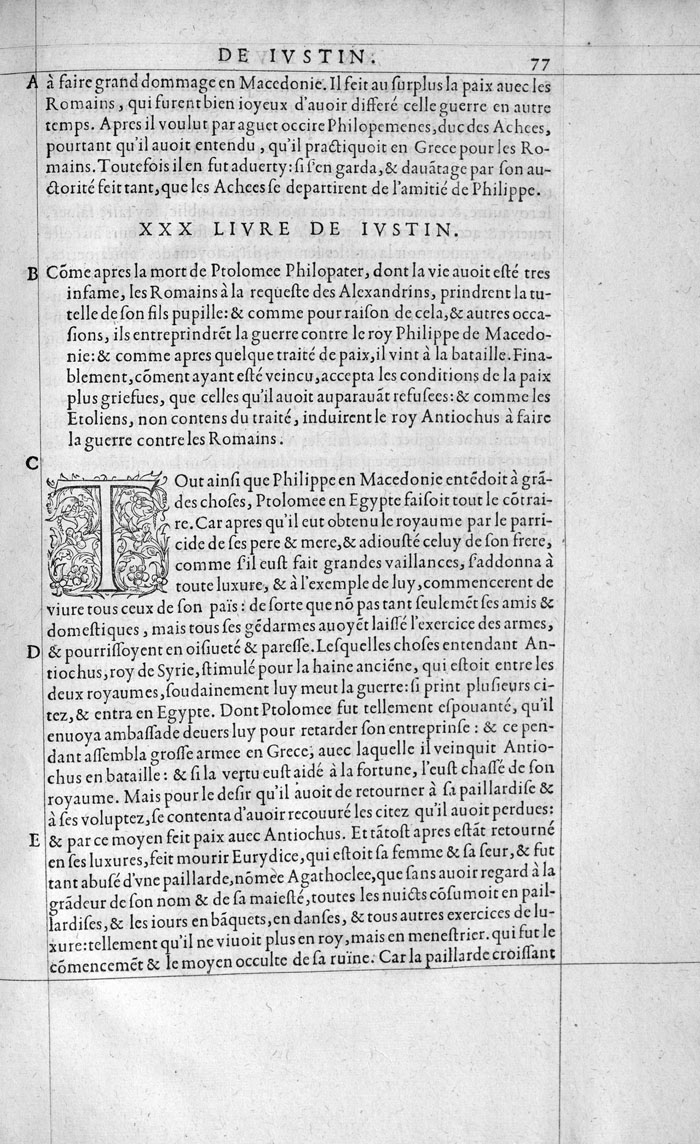 DE IVSTIN. 77
A à faire grand dommage en Macedonie. Il feit au ſurplus la paix auec les
Romains, qui furent bien ioyeux d'auoir differé celle guerre en autre
temps. Apres il voulut par aguet occire Philopemenes, duc des Achees,
pourtant qu'il auoit entendu, qu'il practiquoit en Grece pour les Ro-
mains. Toutefois il en fut aduerty: ſi ſ'en garda, & dauãtage par ſon au-
ctorité feit tant, que les Achees ſe departirent de l'amitié de Philippe.
XXX LIVRE DE IVSTIN.
B Cõme apres la mort de Ptolomee Philopater, dont la vie auoit eſté tres
infame, les Romains à la requeſte des Alexandrins, prindrent la tu-
telle de ſon fils pupille: & comme pour raiſon de cela, & autres occa-
ſions, ils entreprindrẽt la guerre contre le roy Philippe de Macedo-
nie: & comme apres quelque traité de paix, il vint à la bataille. Fina-
blement, cõment ayant eſté veincu, accepta les conditions de la paix
plus griefues, que celles qu'il auoit auparauãt refuſees: & comme les
Etoliens, non contens du traité, induirent le roy Antiochus à faire
la guerre contre les Romains.
C
TOut ainſi que Philippe en Macedonie entẽdoit à grã-
des choſes, Ptolomee en Egypte faiſoit tout le cõtrai-
re. Car apres qu'il eut obtenu le royaume par le parri-
cide de ſes pere & mere, & adiouſté celuy de ſon frere,
comme ſ'il euſt fait grandes vaillances, ſ'addonna à
toute luxure, & à l'exemple de luy, commencerent de
viure tous ceux de ſon païs: de ſorte que nõ pas tant ſeulemẽt ſes amis &
domeſtiques, mais tous ſes gẽdarmes auoyẽt laiſſé l'exercice des armes,
D & pourriſſoyent en oiſiueté & pareſſe. Leſquelles choſes entendant An-
tiochus, roy de Syrie, ſtimulé pour la haine anciẽne, qui eſtoit entre les
deux royaumes, ſoudainement luy meut la guerre: ſi print pluſieurs ci-
tez, & entra en Egypte. Dont Ptolomee fut tellement eſpouanté, qu'il
enuoya ambaſſade deuers luy pour retarder ſon entreprinſe: & ce pen-
dant aſſembla groſſe armee en Grece, auec laquelle il veinquit Antio-
chus en bataille: & ſi la vertu euſt aidé à la fortune, l'euſt chaſſé de ſon
royaume. Mais pour le deſir qu'il auoit de retourner à ſa paillardiſe &
à ſes voluptez, ſe contenta d'auoir recouuré les citez qu'il auoit perdues:
E & par ce moyen feit paix auec Antiochus. Et tãtoſt apres eſtãt retourné
en ſes luxures, feit mourir Eurydice, qui eſtoit ſa femme & ſa ſeur, & fut
tant abuſé d'vne paillarde, nõmee Agathoclee, que ſans auoir regard à la
grãdeur de ſon nom & de ſa maieſté, toutes les nuicts cõſumoit en pail-
lardiſes, & les iours en bãquets, en danſes, & tous autres exercices de lu-
xure: tellement qu'il ne viuoit plus en roy, mais en meneſtrier. qui fut le
cõmencemẽt & le moyen occulte de ſa ruïne. Car la paillarde croiſſant